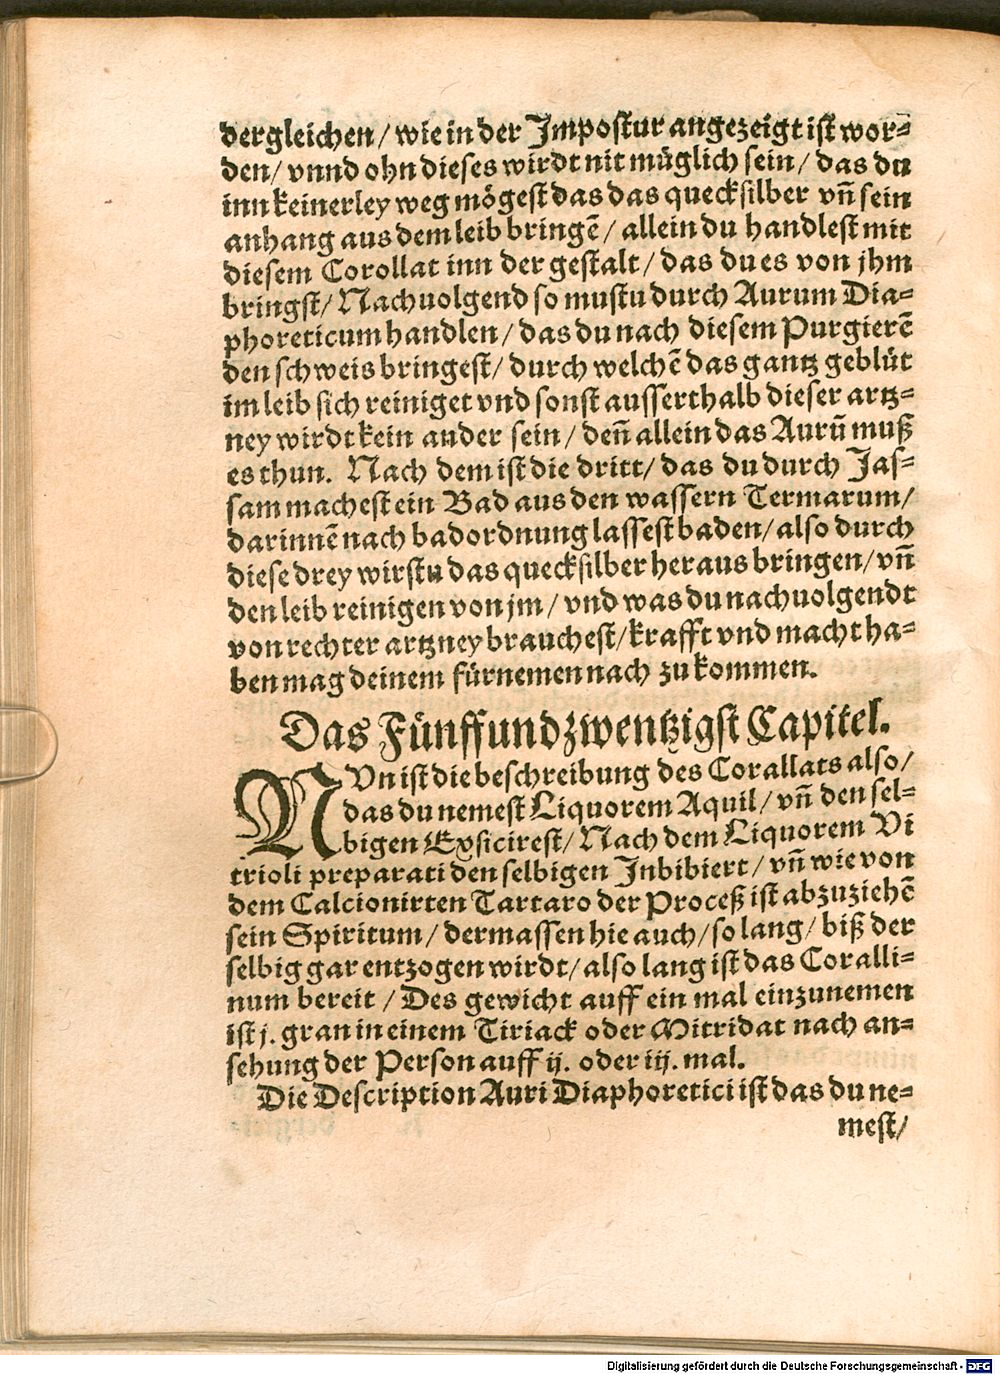 dergleichen / wie in der Impostur angezeigt ist wor=
den / vnnd ohn dieses wirdt nit müglich sein / das du
inn keinerley weg mögest das das quecksilber vn̄ sein
anhang aus dem leib bringē / allein du handlest mit
diesem Corollat inn der gestalt / das du es von jhm
bringst / Nachuolgend so mustu durch Aurum Dia=
phoreticum handlen / das du nach diesem Purgierē
den schweis bringest / durch welchē das gantz geblüt
im leib sich reiniget vnd sonst ausserthalb dieser artz=
ney wirdt kein ander sein / den̄ allein das Aurū muß
es thun. Nach dem ist die dritt / das du durch Jas=
sam machest ein Bad aus den wassern Termarum /
darinnē nach badordnung lassest baden / also durch
diese drey wirstu das quecksilber heraus bringen / vn̄
den leib reinigen von jm / vnd was du nachuolgendt
von rechter artzney brauchest / krafft vnd macht ha=
ben mag deinem fürnemen nach zu kommen.
Das Fünffundzwentzigst Capitel.
NVn ist die beschreibung des Corallats also /
das du nemest Liquorem Aquil / vn̄ den sel=
bigen Exsicirest / Nach dem Liquorem Vi
trioli preparati den selbigen Inbibiert / vn̄ wie von
dem Calcionirten Tartaro der Proceß ist abzuziehē
sein Spiritum / dermassen hie auch / so lang / biß der
selbig gar entzogen wirdt / also lang ist das Coralli=
num bereit / Des gewicht auff ein mal einzunemen
ist j. gran in einem Tiriack oder Mitridat nach an=
sehung der Person auff ij. oder iij. mal.
Die Description Auri Diaphoretici ist das du ne=
mest /
Digitalisierung gefördert durch die Deutsche Forschungsgemeinschaft - DFG